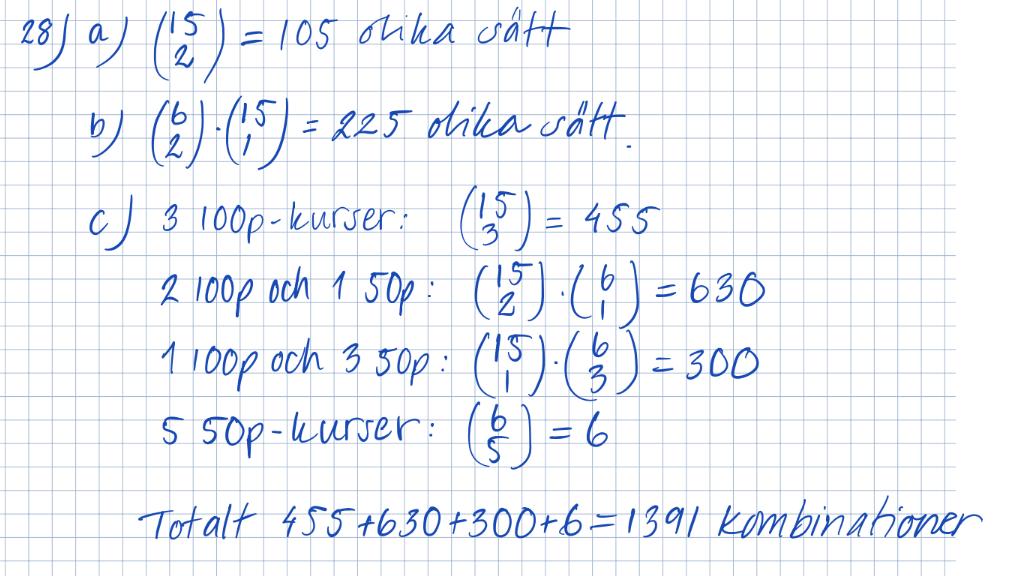 28) a) (15 2) = 105 olika sätt
b) (6 2) · (15 1) = 225 olika sätt.
c) 3 100p-kurser: (15 3) = 455
2 100p och 1 50p: (15 2) · (6 1) = 630
1 100p och 3 50p: (15 1) · (6 3) = 300
5 50p-kurser: (6 5) = 6
Totalt 455+630+300+6=1391 kombinationer